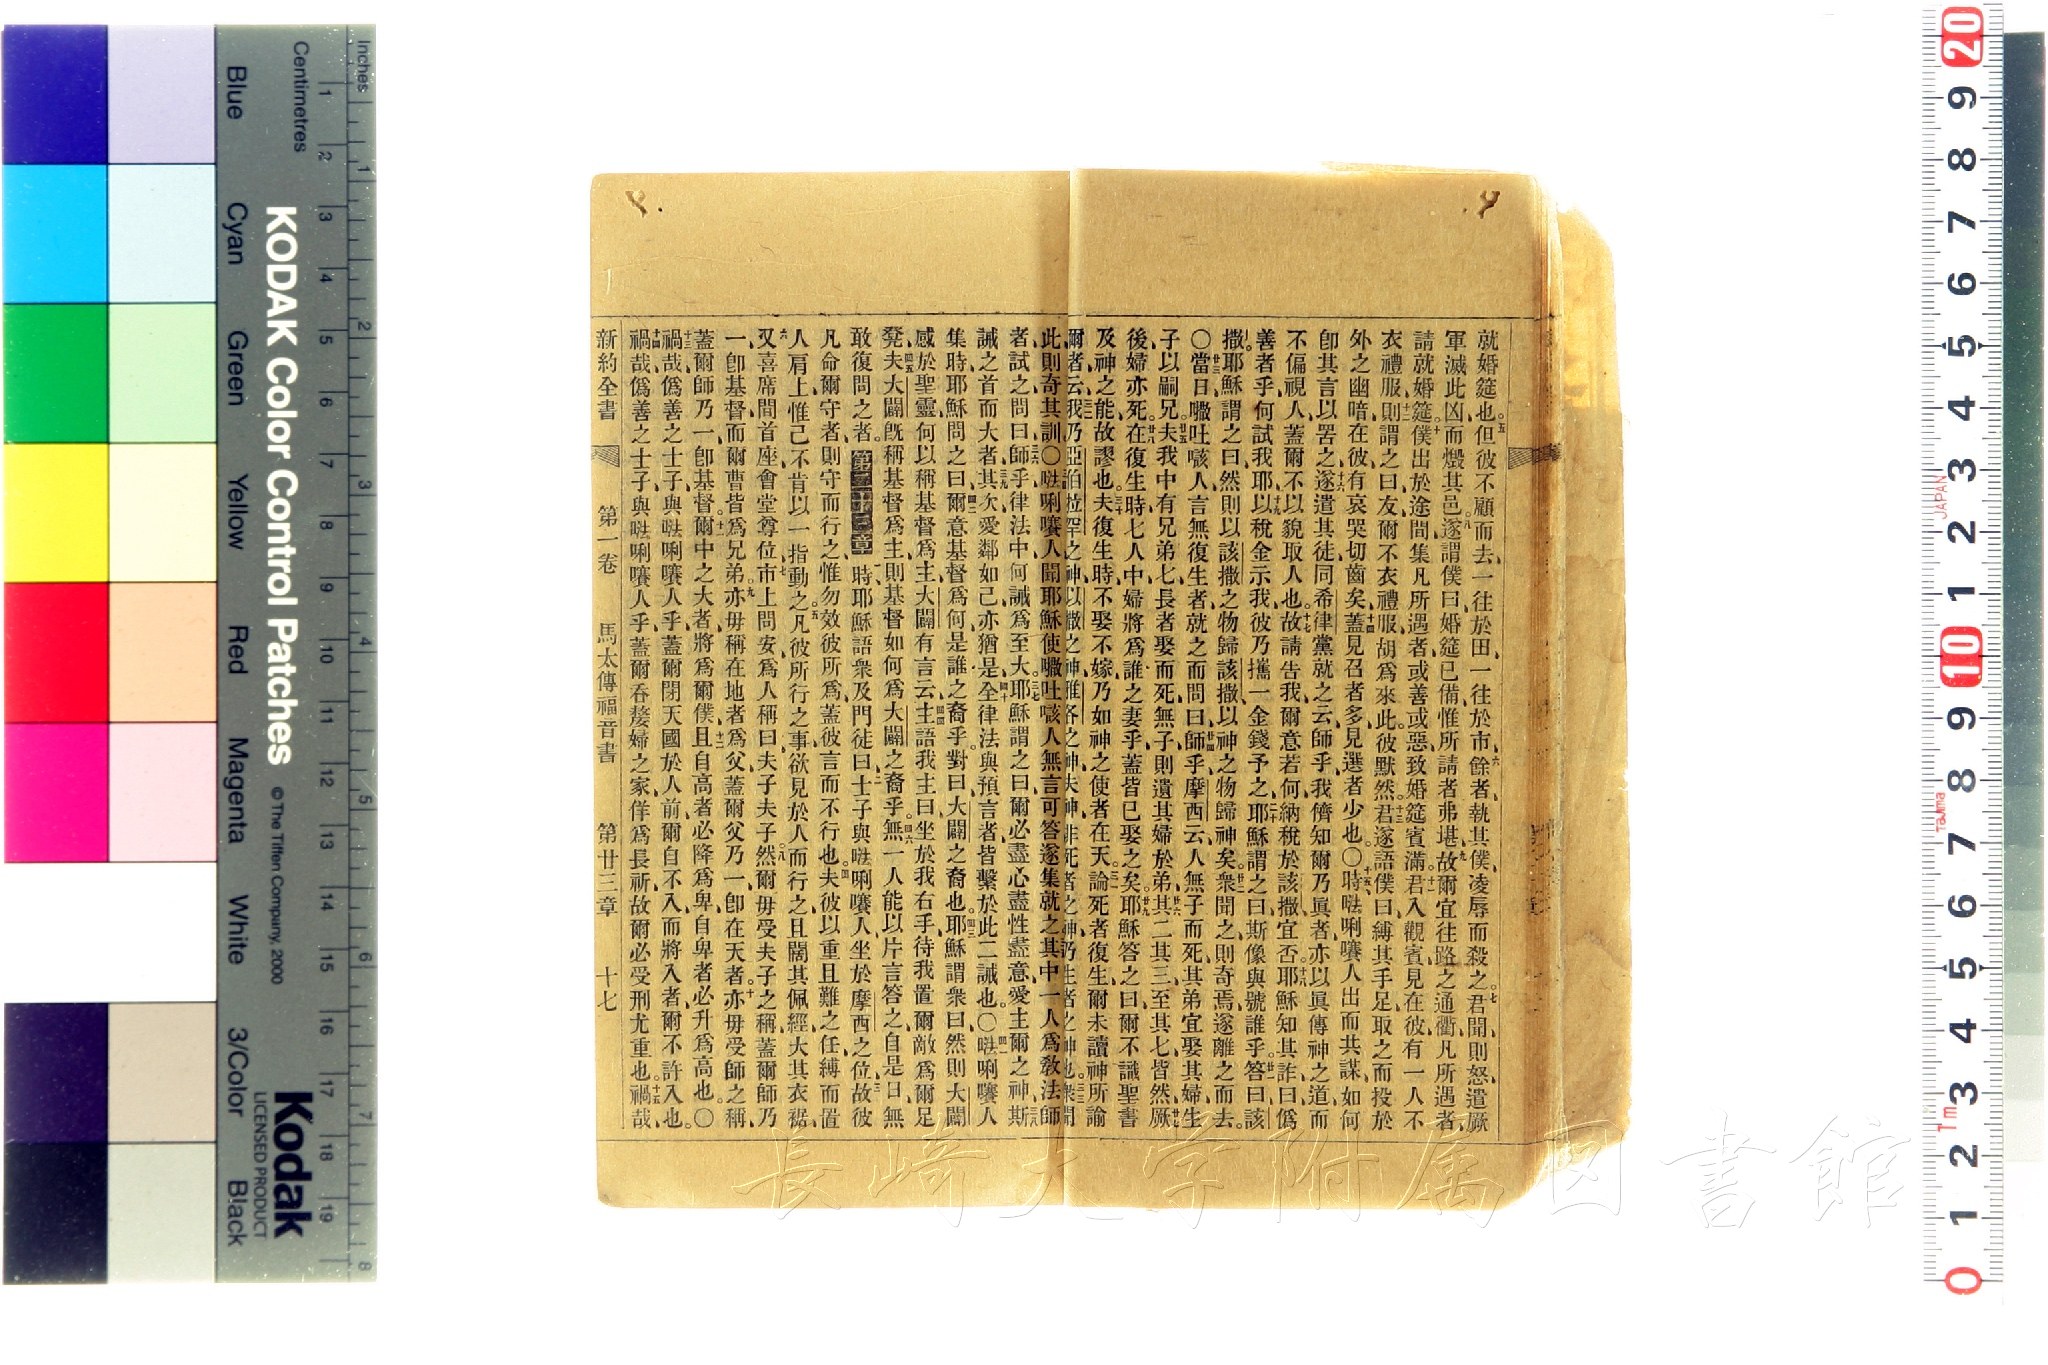 就婚筵也但彼不顧而去一往於田一往於市餘者執其僕凌辱而殺之君聞則怒遣厥
軍滅此凶而燬其邑遂謂僕曰婚筵已備惟所請者弗堪故爾宜往路之通衢凡所遇者
請就婚筵僕出於途間集凡所遇者或善或惡致婚筵賓滿君入觀賓見在彼有一人不
衣禮服則謂之曰友爾不衣禮服胡為來此彼默然君遂語僕曰縛其手足取之而投於
外之幽暗在彼有哀哭切齒矣蓋見召者多見選者少也〇時𠵽唎㘔人出而共謀如何
卽其言以罟之遂遣其徒同希律黨就之云師乎我儕知爾乃眞者亦以眞傳神之道而
不偏視人蓋爾不以貌取人也故請告我爾意若何納稅於該撒宜否耶穌知其詐曰偽
善者乎何試我耶以稅金示我彼乃攜一金錢予之耶穌謂之曰斯像與號誰乎答曰該
撒耶穌謂之曰然則以該撒之物歸該撒以神之物歸神矣衆聞之則奇焉遂離之而去
〇當日㘔吐㖡人言無復生者就之而問曰師乎摩西云人無子而死其弟宜娶其婦生
子以嗣兄夫我中有兄弟七長者娶而死無子則遺其婦於弟其二其三至其七皆然厥
後婦亦死在復生時七人中婦將為誰之妻乎蓋皆已娶之矣耶穌答之曰爾不識聖書
及神之能故謬也夫復生時不娶不嫁乃如神之使者在天論死者復生爾未讀神所諭
爾者云我乃亞伯拉罕之神以撒之神雅各之神夫神非死者之神乃生者之神也衆聞
此則奇其訓〇𠵽唎㘔人聞耶穌使㘔吐㖡人無言可答遂集就之其中一人為敎法師
者試之問曰師乎律法中何誡為至大耶穌謂之曰爾必盡心盡性盡意愛主爾之神斯
誡之首而大者其次愛鄰如己亦猶是全律法與預言者皆繫於此二誡也〇𠵽唎㘔人
集時耶穌問之曰爾意基督為何是誰之裔乎對曰大闢之裔也耶穌謂衆曰然則大闢
感於聖靈何以稱基督為主大闢有言云主語我主曰坐於我右手待我置爾敵為爾足
凳夫大闢旣稱基督為主則基督如何為大闢之裔乎無一人能以片言答之自是日無
敢復問之者 第二十三章 時耶穌語衆及門徒曰士子與𠵽唎㘔人坐於摩西之位故彼
凡命爾守者則守而行之惟勿效彼所為蓋彼言而不行也夫彼以重且難之任縛而置
人肩上惟己不肯以一指動之凡彼所行之事欲見於人而行之且闊其佩經大其衣裾
又喜席間首座會堂尊位市上問安為人稱曰夫子夫子然爾毋受夫子之稱蓋爾師乃
一卽基督而爾曹皆為兄弟亦毋稱在地者為父蓋爾父乃一卽在天者亦毋受師之稱
蓋爾師乃一卽基督爾中之大者將為爾僕且自高者必降為卑自卑者必升為高也〇
禍哉偽善之士子與𠵽唎㘔人乎蓋爾閉天國於人前爾自不入而將入者爾不許入也
禍哉偽善之士子與𠵽唎㘔人乎蓋爾吞嫠婦之家佯為長祈故爾必受刑尤重也禍哉
新約全書 第一卷 馬太傳福音書 第廿三章 十七
Inches
Centimetres
KODAK Color Control Patches
© The Tiffen Company, 2000
Blue Cyan Green Yellow Red Magenta White 3/Color Black
Kodak
LICENSED PRODUCT
JAPAN
Tajima
長崎大学附属図書館